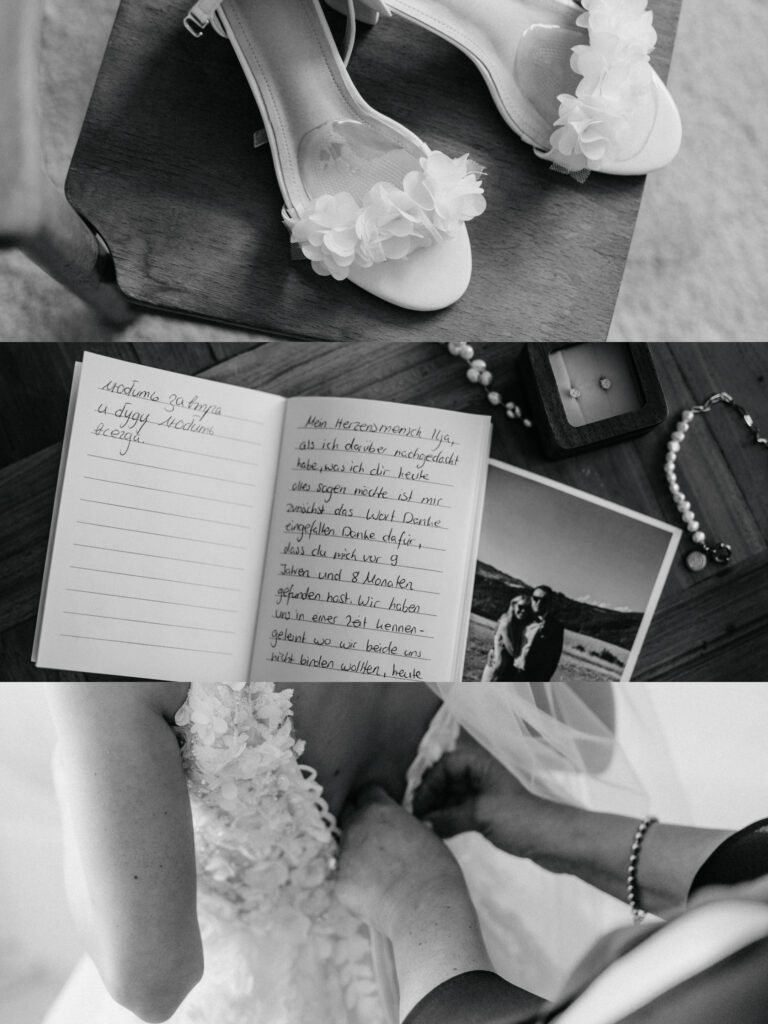 любить завтра
и буду любить
всегда.
Mein Herzensmensch Ilja,
als ich darüber nachgedacht
habe, was ich dir heute
alles sagen möchte ist mir
zunächst das Wort Danke
eingefallen Danke dafür,
dass du mich vor 9
Jahren und 8 Monaten
gefunden hast. Wir haben
uns in einer Zeit kennen-
gelernt wo wir beide uns
nicht binden wollten, heute